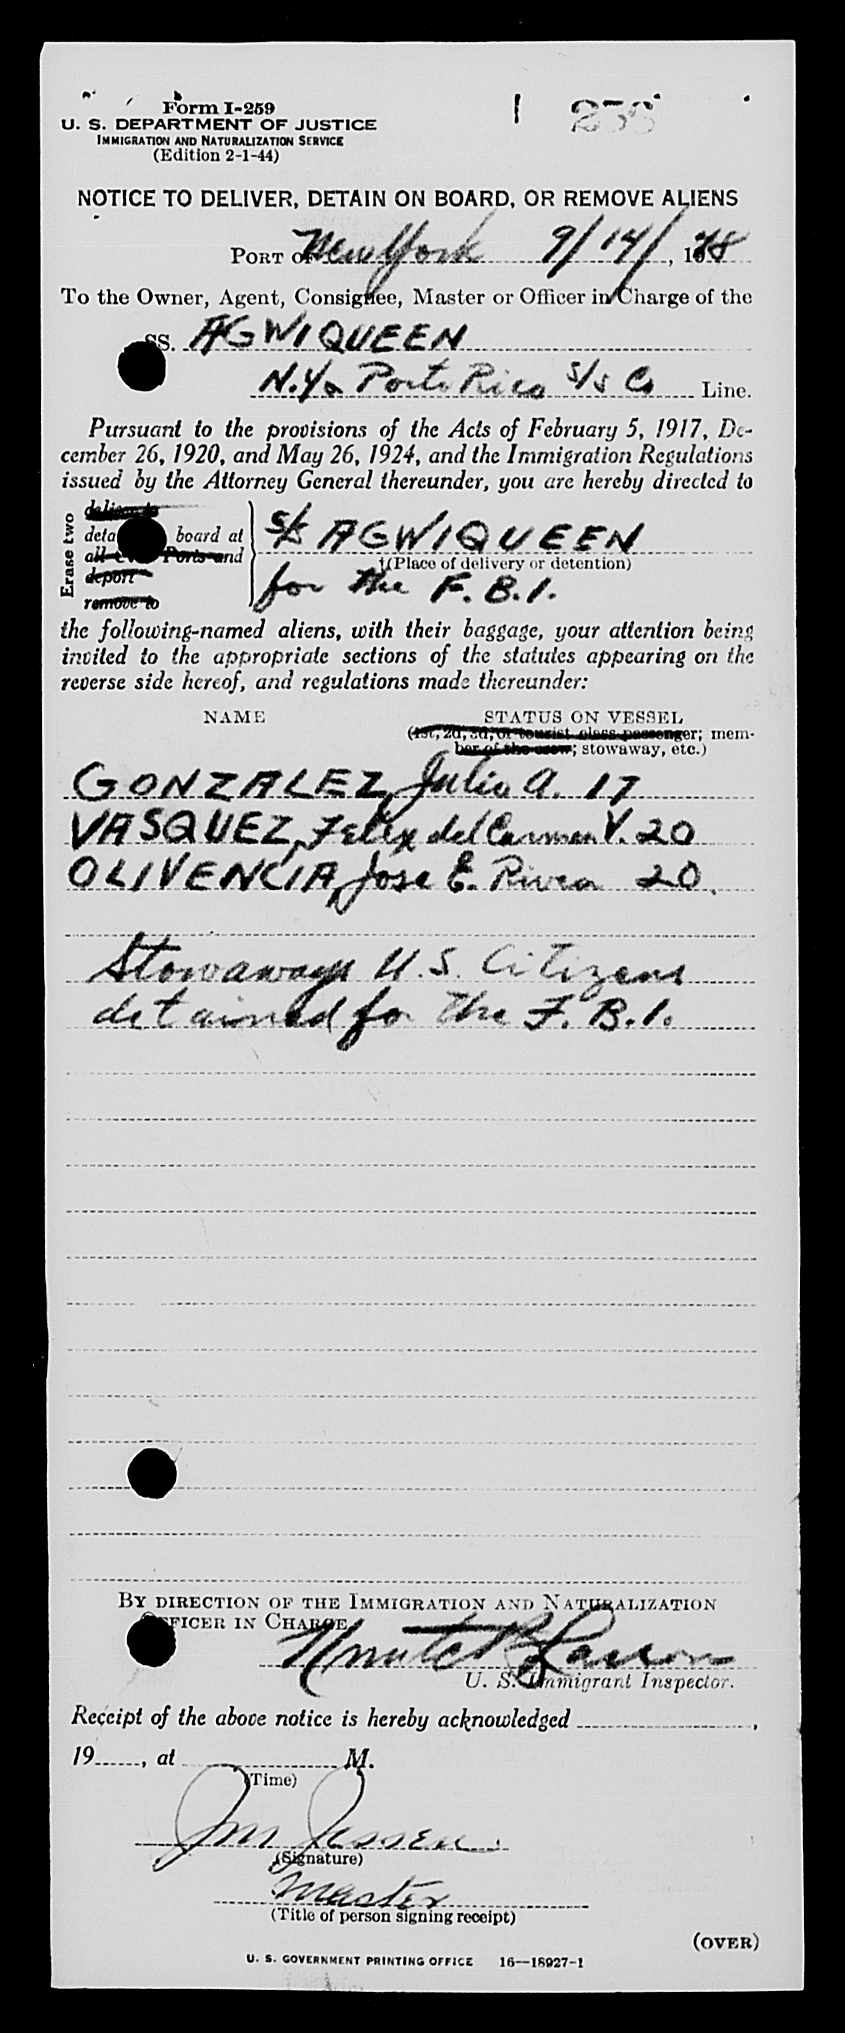 Form I-259
U. S. DEPARTMENT OF JUSTICE
IMMIGRATION AND NATURALIZATION SERVICE
(Edition 2-1-44)
NOTICE TO DELIVER, DETAIN ON BOARD, OR REMOVE ALIENS
PORT OF New York 9/14/, 19
To the Owner, Agent, Consignee, Master or Officer in Charge of the
SS. AGWIQUEEN
N.Y. & Porto Rico S/S Co Line.
Pursuant to the provisions of the Acts of February 5, 1917, De-
cember 26, 1920, and May 26, 1924, and the Immigration Regulations
issued by the Attorney General thereunder, you are hereby directed to
Erase two
deliver to
board at S/S AGWIQUEEN
Ports and
(Place of delivery or detention)
deport for the F.B.I.
remove to
the following-named aliens, with their baggage, your attention being
invited to the appropriate sections of the statutes appearing on the
reverse side hereof, and regulations made thereunder:
NAME STATUS ON VESSEL
(1st, 2d, 3d, or tourist class passenger; mem-
ber of the crew; stowaway, etc.)
GONZALEZ, Julio A. 17
VASQUEZ, Felix del Carmen V. 20
OLIVENCIA, Jose E. Rivera 20.
Stowaways U.S. Citizens
detained for the F.B.I.
BY DIRECTION OF THE IMMIGRATION AND NATURALIZATION
OFFICER IN CHARGE
Knute R Larson
U. S. Immigrant Inspector.
Receipt of the above notice is hereby acknowledged ,
19 , at M.
(Time)
Jessen
(Signature)
Master
(Title of person signing receipt)
(OVER)
U. S. GOVERNMENT PRINTING OFFICE 16—18927-1